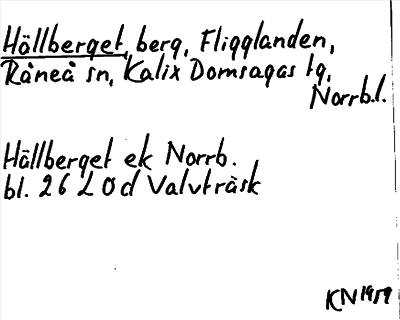 Hällberget, berg, Fligglanden,
Råneå sn, Kalix Domsagas tg,
Norrb.l.
Hällberget ek Norrb.
bl. 26 L 0 d Valvträsk
KN 1959